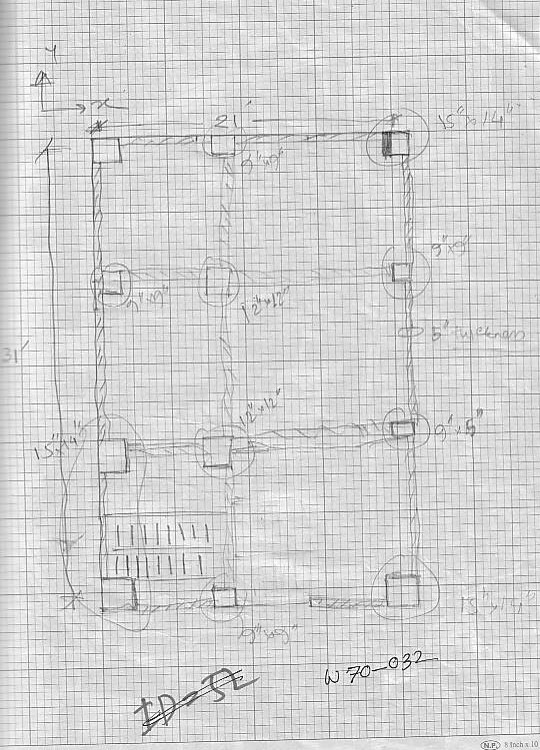 Y
x
21'
15" x 14"
9" x 9"
9" x 9"
9" x 9"
12" x 12"
5" thickness
31'
12" x 12"
15" x 14"
9" x 5"
15" x 14"
9" x 9"
ID = 52
W 70-032
N.P. 8 Inch x 10